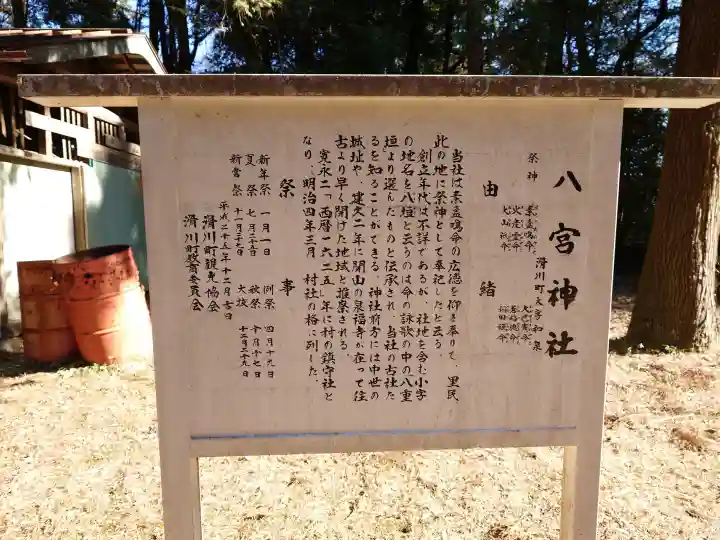 八宮神社
滑川町大字和泉
祭神
素盞嗚命
火産霊命
大山祇命
大己貴命
誉田別命
由緒
当社は素盞嗚命の広徳を仰ぎ奉りて、里民
此の地に祭神として奉祀したと云る。
創立年代は不詳であるが、社地を含む小字
の地名を八垣と云うのは命の詠歌の中の八重
垣より選んだものと伝承され、当社の古社た
るを知ることができる。神社前方には中世の
城址や、建久二年に開山の泉福寺が在って往
古より早く開けた地域と推察される。
寛永二「西暦一六二五」年に村の鎮守社と
なり、明治四年三月、村社の格に列した。
祭事
新年祭 一月一日 例祭 四月十九日
夏祭 七月二十日 秋祭 十月十七日
新嘗祭 十一月二十三日 大祓 十二月二十九日
平成二十五年十二月吉日
滑川町観光協会
滑川町教育委員会